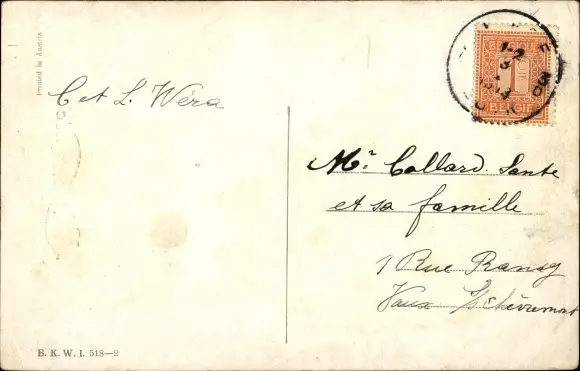 Printed in Austria
C et L. Wéra
1
BELGIË
Mr. Collard Sante
et sa famille
1 Rue Ransy
Vaux s/ Chèvremont
B. K. W. I. 518—2